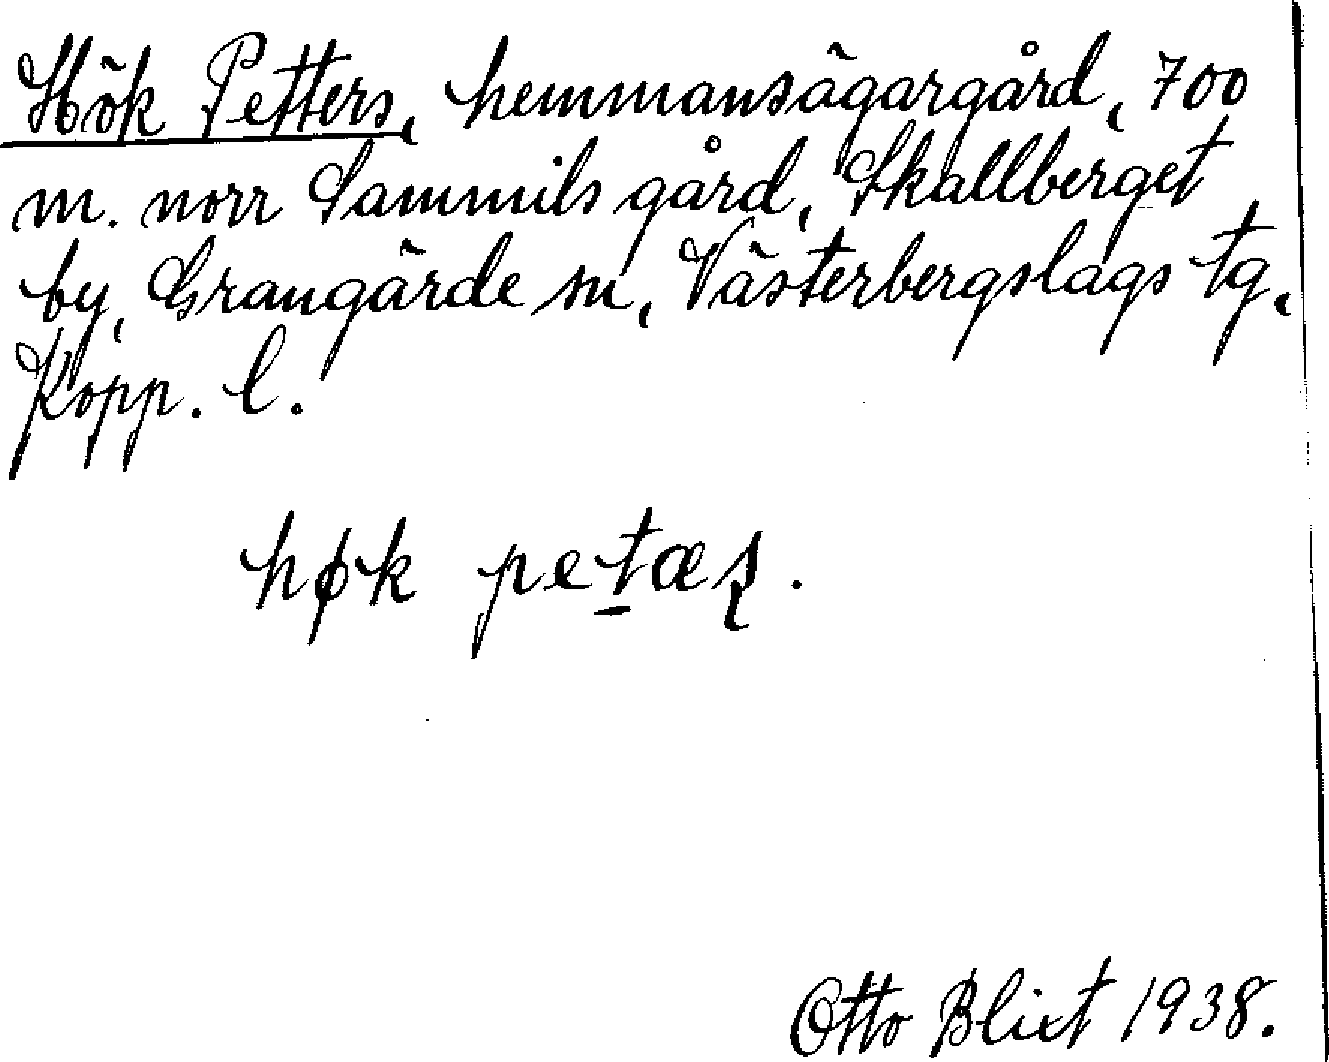 Hök Petters, hemmansägargård, 700
m. norr Sammils gård, Skallberget
by, Grangärde sn, Västerbergslags tg,
Kopp. l.
høk petæʂ.
Otto Blixt 1938.